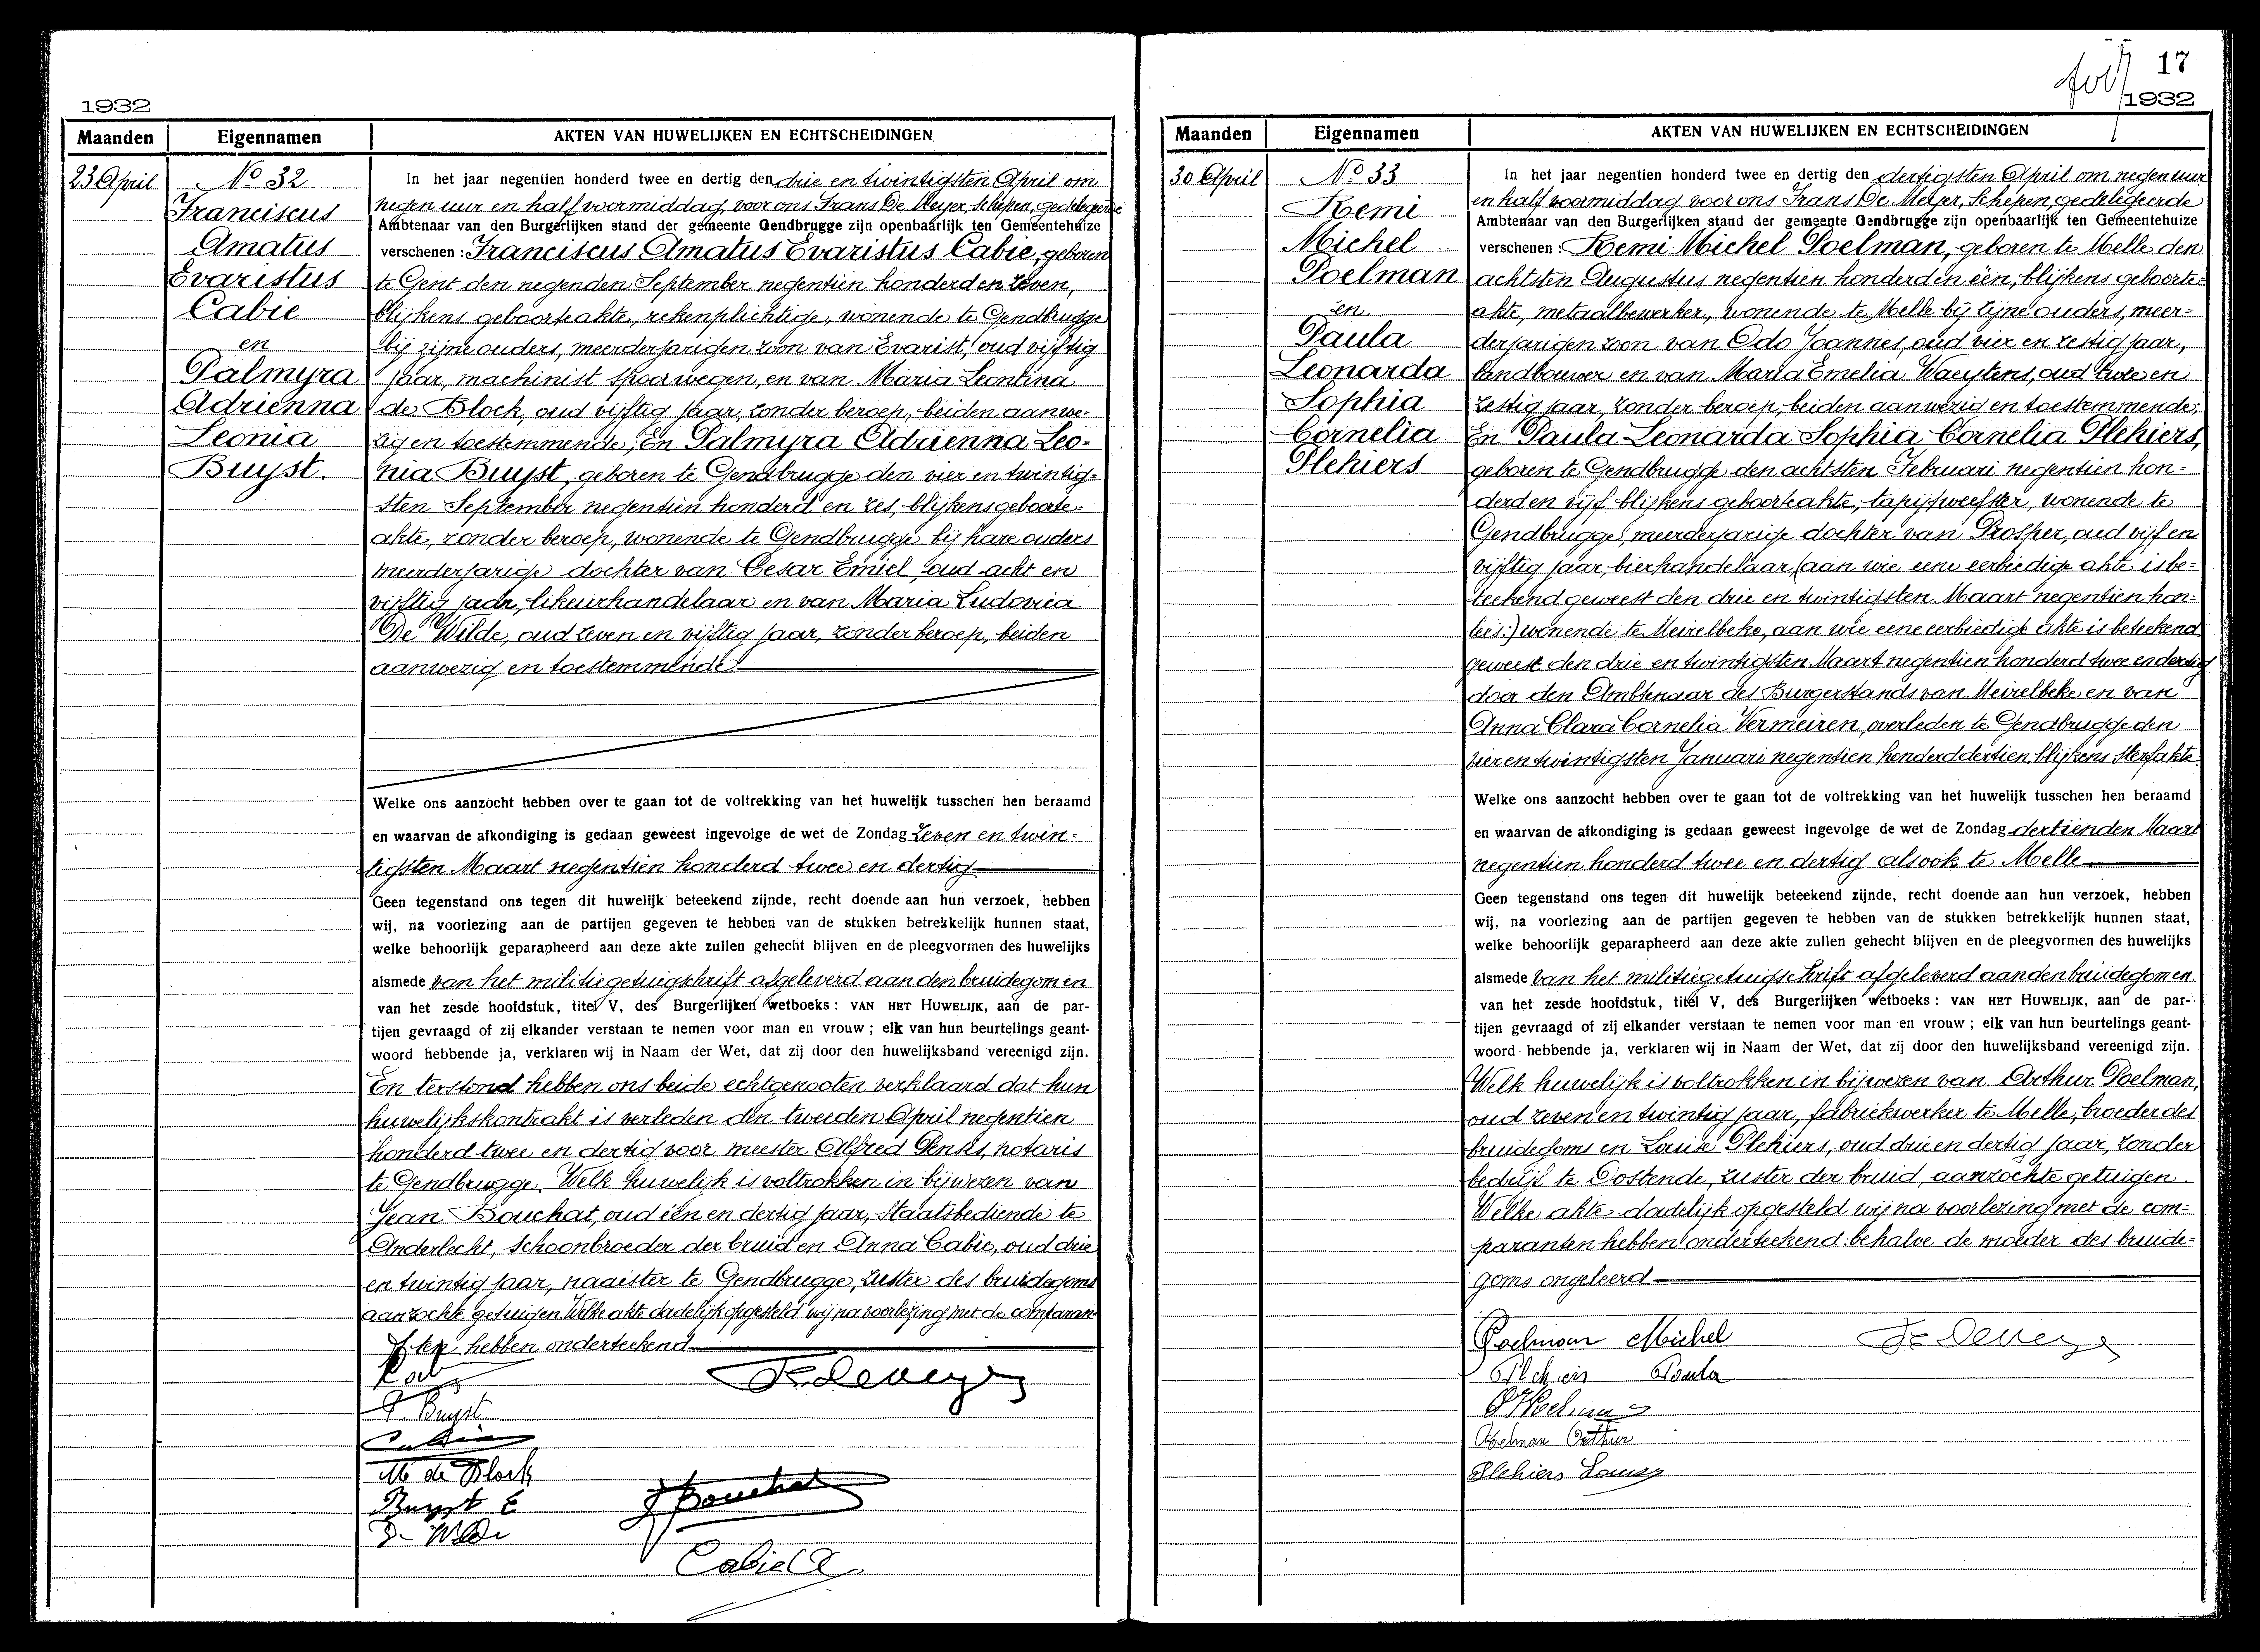 1932
Maanden Eigennamen AKTEN VAN HUWELIJKEN EN ECHTSCHEIDINGEN
23 April
No 32
Franciscus
Amatus
Evaristus
Cabie
en
Palmyra
Adrienna
Leonia
Buyst.
In het jaar negentien honderd twee en dertig den drie en twintigsten April om
negen uur en half voormiddag, voor ons Frans De Meyer, Schepen, gedelegeerde
Ambtenaar van den Burgerlijken stand der gemeente Gendbrugge zijn openbaarlijk ten Gemeentehuize
verschenen : Franciscus Amatus Evaristus Cabie, geboren
te Gent den negenden September negentien honderd en zeven,
blijkens geboorteakte, rekenplichtige, wonende te Gendbrugge
bij zijne ouders, meerderjarigen zoon van Evarist, oud vijftig
jaar, machinist spoorwegen, en van Maria Leontina
de Block, oud vijftig jaar, zonder beroep, beiden aanwe-
zig en toestemmende; En Palmyra Adrienna Leo-
nia Buyst, geboren te Gendbrugge den vier en twintig-
sten September negentien honderd en zes, blijkens geboorte-
akte, zonder beroep, wonende te Gendbrugge bij hare ouders
meerderjarige dochter van Cesar Emiel, oud acht en
vijftig jaar, likeurhandelaar en van Maria Ludovica
De Wilde, oud zeven en vijftig jaar, zonder beroep, beiden
aanwezig en toestemmende
Welke ons aanzocht hebben over te gaan tot de voltrekking van het huwelijk tusschen hen beraamd
en waarvan de afkondiging is gedaan geweest ingevolge de wet de Zondag zeven en twin-
tigsten Maart negentien honderd twee en dertig
Geen tegenstand ons tegen dit huwelijk beteekend zijnde, recht doende aan hun verzoek, hebben
wij, na voorlezing aan de partijen gegeven te hebben van de stukken betrekkelijk hunnen staat,
welke behoorlijk geparapheerd aan deze akte zullen gehecht blijven en de pleegvormen des huwelijks
alsmede van het militiegetuigschrift afgeleverd aan den bruidegom en
van het zesde hoofdstuk, titel V, des Burgerlijken wetboeks : VAN HET HUWELIJK, aan de par-
tijen gevraagd of zij elkander verstaan te nemen voor man en vrouw ; elk van hun beurtelings geant-
woord hebbende ja, verklaren wij in Naam der Wet, dat zij door den huwelijksband vereenigd zijn.
En terstond hebben ons beide echtgenooten verklaard dat hun
huwelijkskontrakt is verleden den tweeden April negentien
honderd twee en dertig voor meester Alfred notaris
te Gendbrugge. Welk huwelijk is voltrokken in bijwezen van
Jean Bouchat, oud één en dertig jaar, Staatsbediende te
Anderlecht, schoonbroeder der bruid en Anna Cabie, oud drie
en twintig jaar, naaister te Gendbrugge, zuster des bruidegoms
aanzochte getuigen Welke akte dadelijk opgesteld wij na voorlezing met de comparan-
ten hebben onderteekend
F. De Meyer
P. Buyst
Cabie
M de Block
Buyst E
J Bouchat
De Wilde
Cabie A
17
1932
Maanden Eigennamen AKTEN VAN HUWELIJKEN EN ECHTSCHEIDINGEN
30 April
No 33
Remi
Michel
Poelman
en.
Paula
Leonarda
Sophia
Cornelia
Plehiers
In het jaar negentien honderd twee en dertig den dertigsten April om negen uur
en half voormiddag voor ons Frans De Meyer, Schepen, gedelegeerde
Ambtenaar van den Burgerlijken stand der gemeente Gendbrugge zijn openbaarlijk ten Gemeentehuize
verschenen : Remi Michel Poelman, geboren te Melle den
achtsten Augustus negentien honderd en één, blijkens geboorte-
akte, metaalbewerker, wonende te Melle bij zijne ouders, meer-
derjarigen zoon van Odo Joannes, oud vier en zestig jaar,
landbouwer en van Maria Emelia Wauytens, oud twee en
zestig jaar, zonder beroep, beiden aanwezig en toestemmende;
En Paula Leonarda Sophia Cornelia Plehiers,
geboren te Gendbrugge den achtsten Februari negentien hon-
derd en vijf blijkens geboorteakte, tapijtweefster, wonende te
Gendbrugge, meerderjarige dochter van Prosper, oud vijf en
vijftig jaar, bierhandelaar, (aan wie eene eerbiedige akte is be-
teekend geweest den drie en twintigsten Maart negentien hon-
lees:) wonende te Meirelbeke, aan wie eene eerbiedige akte is beteekend
geweest den drie en twintigsten Maart negentien honderd twee en dertig
door den Ambtenaar des Burgerstands van Meirelbeke en van
Anna Clara Cornelia Vermeiren, overleden te Gendbrugge den
vier en twintigsten Januari negentien honderd dertien, blijkens sterfakte
Welke ons aanzocht hebben over te gaan tot de voltrekking van het huwelijk tusschen hen beraamd
en waarvan de afkondiging is gedaan geweest ingevolge de wet de Zondag dertienden Maart
negentien honderd twee en dertig alsook te Melle
Geen tegenstand ons tegen dit huwelijk beteekend zijnde, recht doende aan hun verzoek, hebben
wij, na voorlezing aan de partijen gegeven te hebben van de stukken betrekkelijk hunnen staat,
welke behoorlijk geparapheerd aan deze akte zullen gehecht blijven en de pleegvormen des huwelijks
alsmede van het militiegetuigschrift afgeleverd aan den bruidegom en.
van het zesde hoofdstuk, titel V, des Burgerlijken wetboeks : VAN HET HUWELIJK, aan de par-
tijen gevraagd of zij elkander verstaan te nemen voor man en vrouw ; elk van hun beurtelings geant-
woord hebbende ja, verklaren wij in Naam der Wet, dat zij door den huwelijksband vereenigd zijn.
Welk huwelijk is voltrokken in bijwezen van Arthur Poelman,
oud zeven en twintig jaar, fabriekwerker te Melle, broeder des
bruidegoms en Louise Plehiers, oud drie en dertig jaar, zonder
bedrijf te Oostende, zuster der bruid, aanzochte getuigen.
Welke akte dadelijk opgesteld wij na voorlezing met de com-
paranten hebben onderteekend behalve de moeder des bruide-
goms ongeleerd
Poelman Michel F. De Meyer
Plehiers Paula
Poelman
Poelman Arthur
Plehiers Louisa